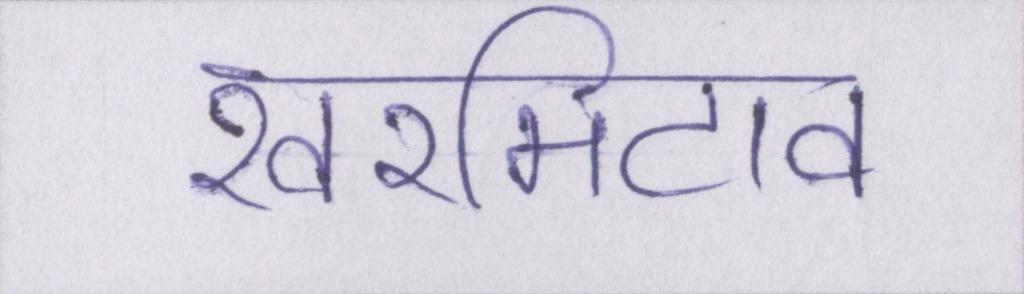 खरमिटाव